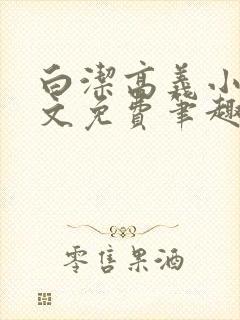 白潔高義小
文免费笔趣
零售果酒